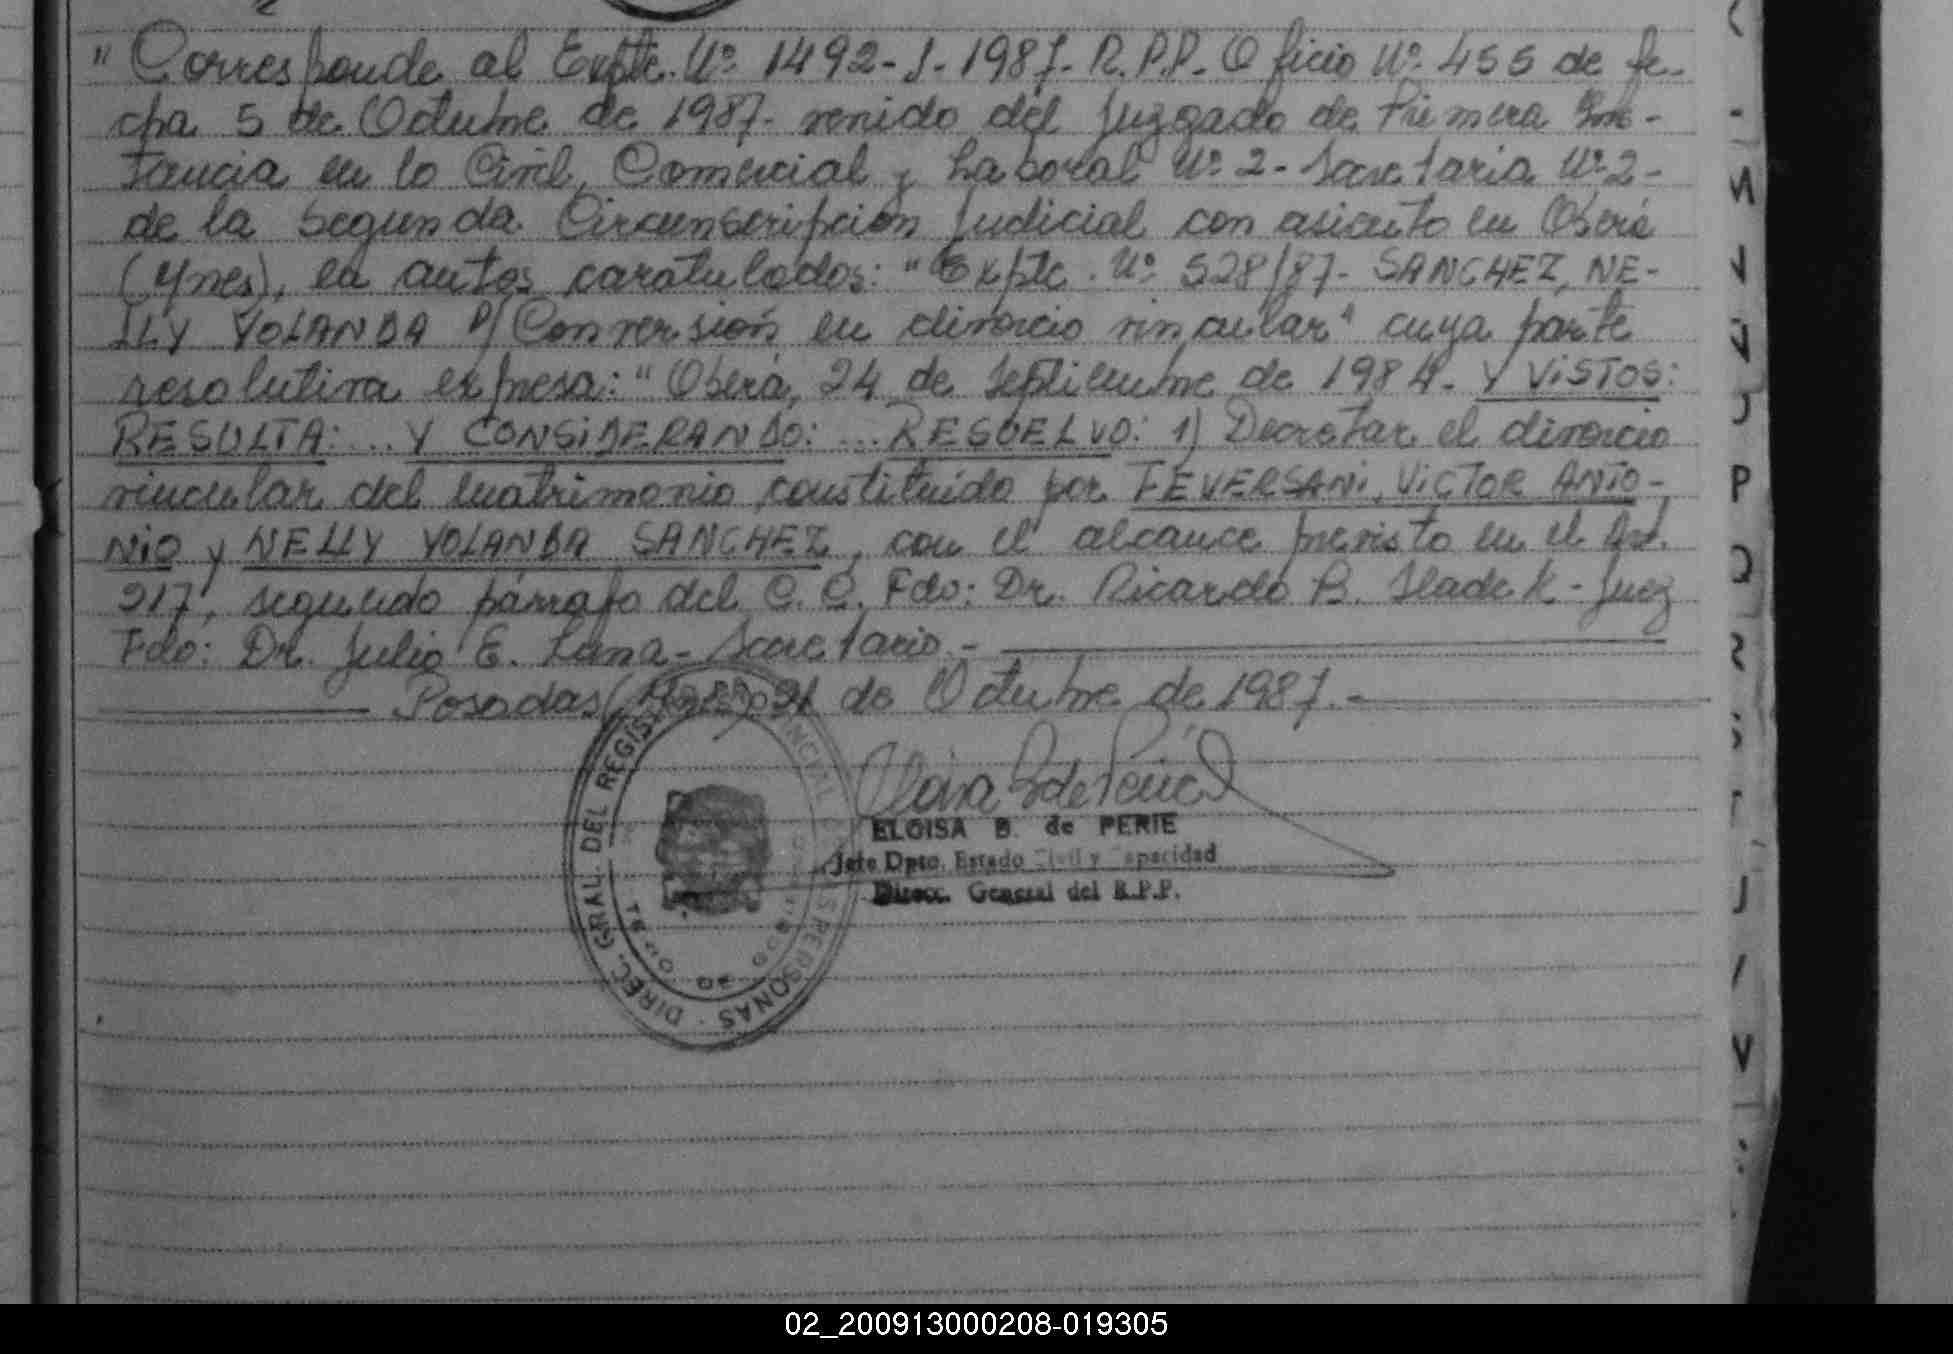 " Corresponde al Expte. Nº 1492-J-1987- R.P.P. Oficio Nº 455 de fe-
cha 5 de Octubre de 1987- venido del Juzgado de Primera Ins-
tancia en lo Civil, Comercial y Laboral Nº 2- Secretaria Nº 2-
de la Segunda Circunscripción Judicial con asiento en Oberá
(Mnes), en autos caratulados: "Expte. Nº 528/87- SANCHEZ, NE-
LLY YOLANDA P/ Conversión en divorcio vincular" cuya parte
resolutiva expresa: "Oberá, 24 de Septiembre de 198 - Y VISTOS:
RESULTA: ... Y CONSIDERANDO: ... RESUELVO: 1) Decretar el divorcio
vincular del matrimonio constituído por FEVERSANI, VICTOR ANTO-
NIO y NELLY YOLANDA SANCHEZ, con el alcance previsto en el Art.
217, segundo párrafo del C. C. Fdo: Dr. Ricardo B. Sladek - Juez
Fdo: Dr. Julio E. Luna - Secretario.-
Posadas (Mnes), 21 de Octubre de 1987.-
DIREC. GRAL. DEL REGIST PERSONAS
ELOISA B. de PERIE
Jefe Dpto. Estado Civil y Capacidad
Direcc. General del R.P.P.
02_200913000208-019305